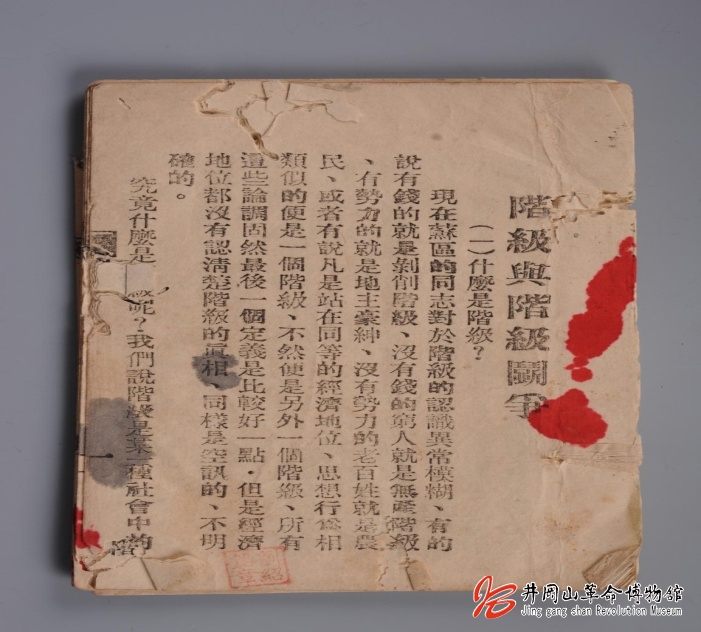 階級與階級鬭爭
(一)什麼是階級?
現在蘇區的同志對於階級的認識異常模糊、有的
說有錢的就是剝削階級、沒有錢的窮人就是無產階級
、有勢力的就是地主豪紳、沒有勢力的老百姓就是農
民、或者有說凡是站在同等的經濟地位、思想行爲相
類似的便是一個階級、不然便是另外一個階級、所有
這些論調固然最後一個定義是比較好一點・但是經濟
地位都沒有認清楚階級的真相、同樣是空訊的、不明
確的。
究竟什麼是 級呢?我們說階級是某一種社會中的
階
井冈山革命博物馆
Jing gang shan Revolution Museum